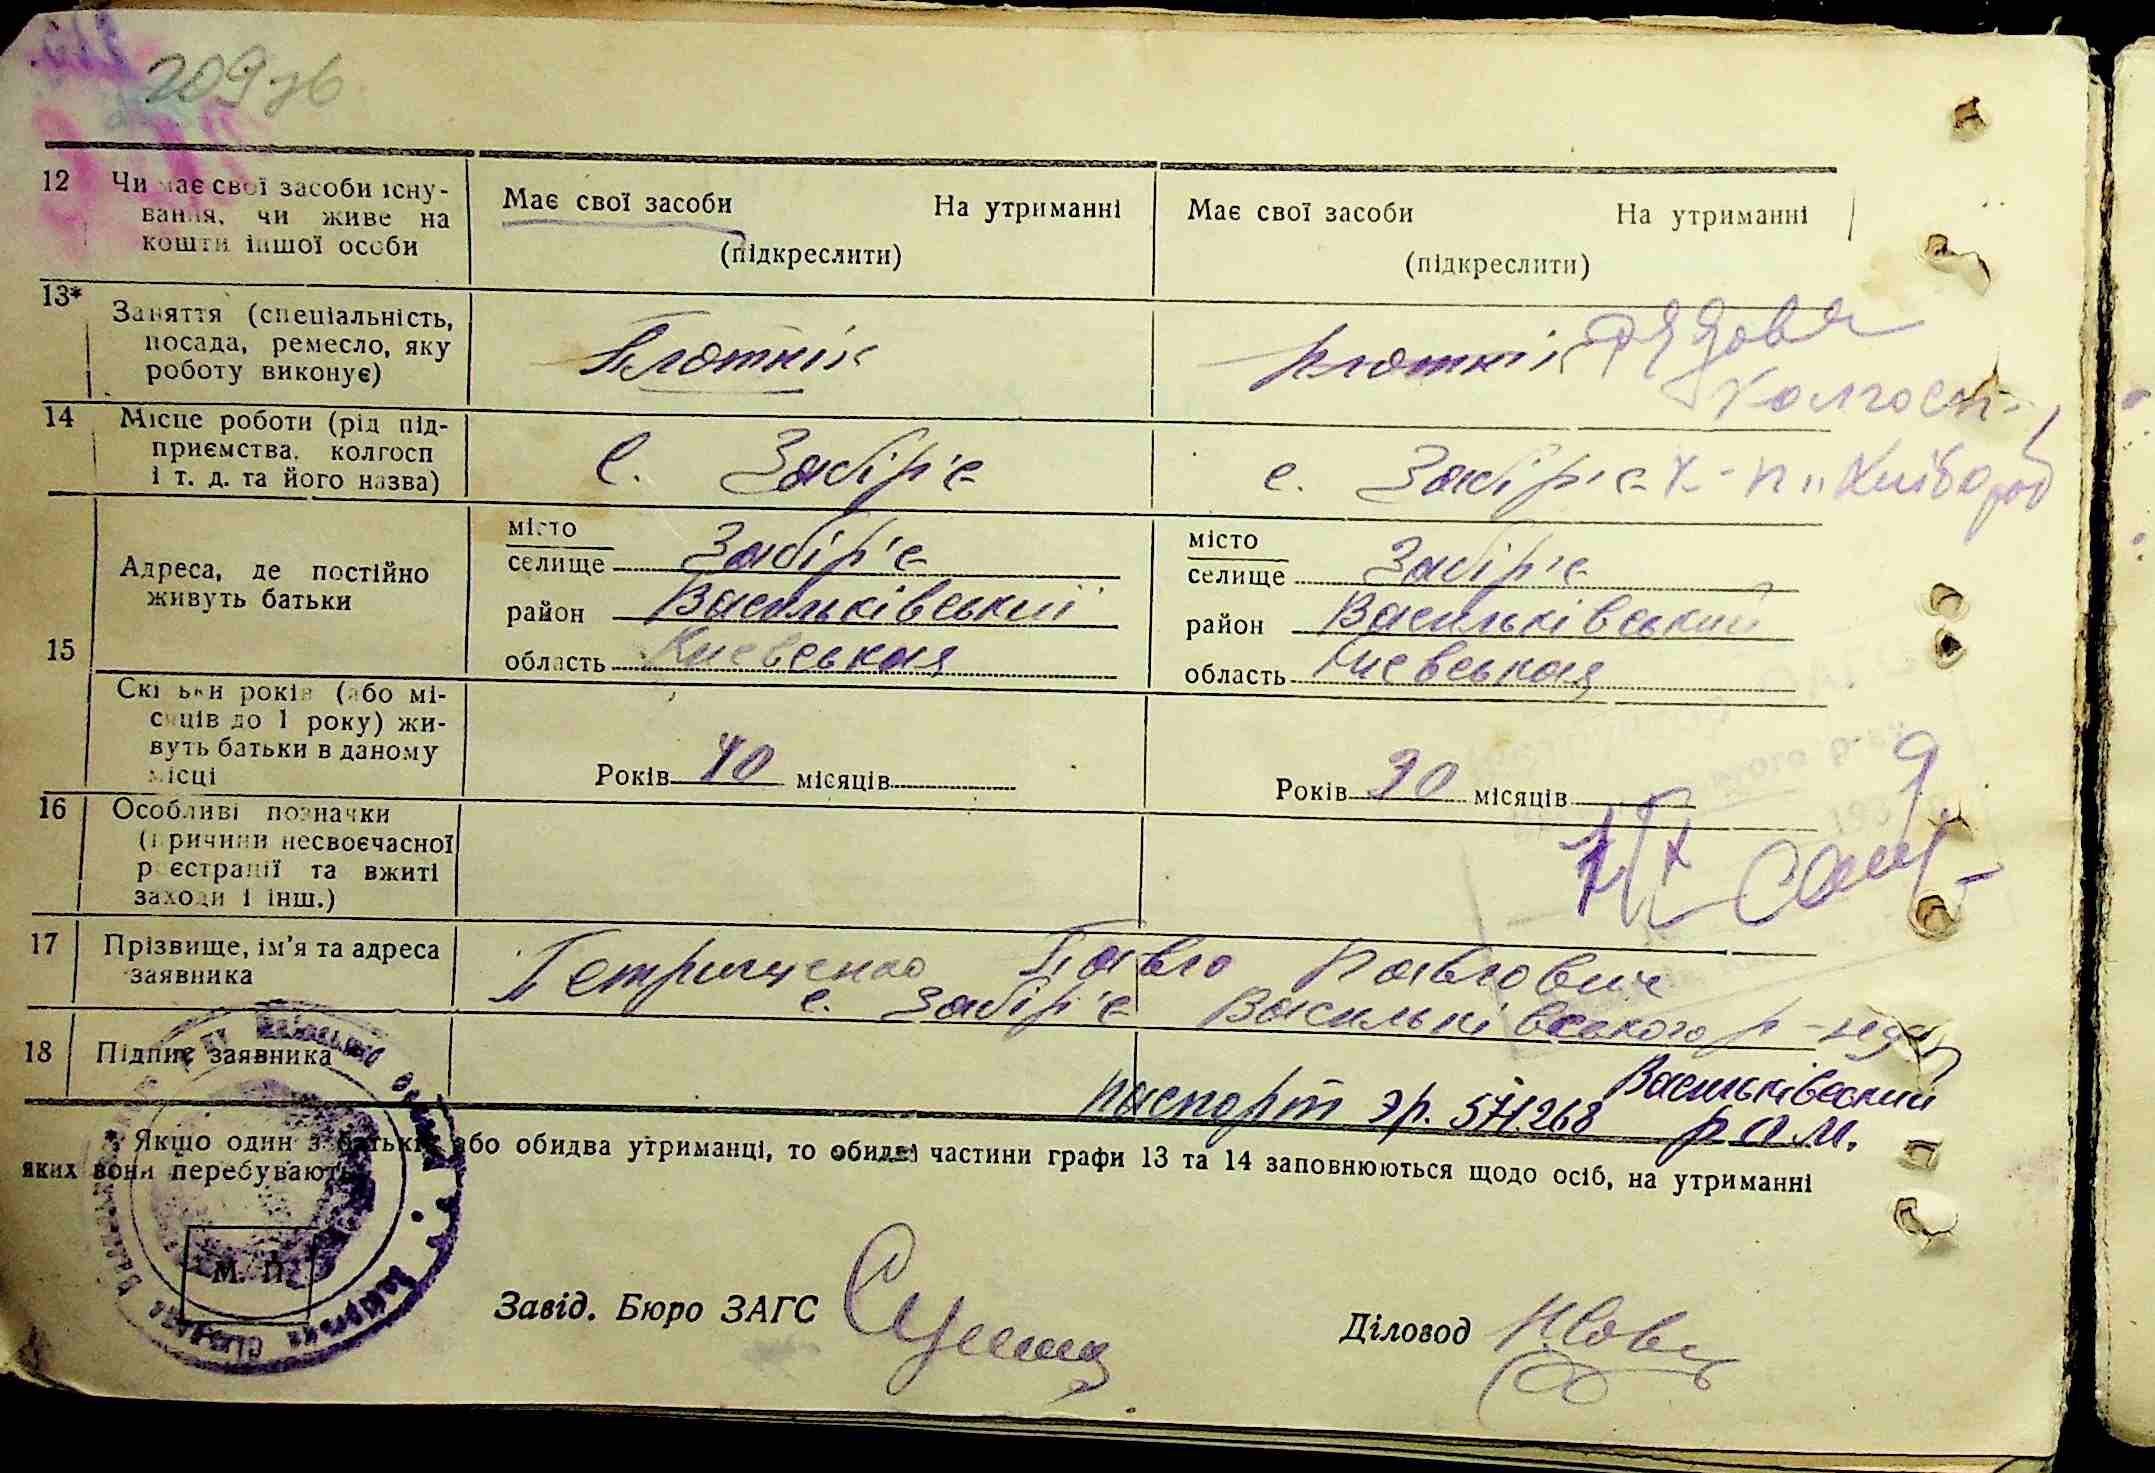 209 зв
12 Чи має свої засоби існу-
вання, чи живе на
кошти іншої особи
Має свої засоби На утриманні
(підкреслити)
Має свої засоби На утриманні
(підкреслити)
13* Заняття (спеціальність,
посада, ремесло, яку
роботу виконує)
Плотнік
плотнік рядова
колгосп-
14 Місце роботи (рід під-
приємства, колгосп
і т. д. та його назва)
с. Забір'є
с. Забір'є к-п "Київ
15 Адреса, де постійно
живуть батьки
місто
селище Забір'є
район Васильківський
область Киевськая
місто
селище Забір'є
район Васильківський
область Киевськая
Скільки років (або мі-
сяців до 1 року) жи-
вуть батьки в даному
місці
Років 40 місяців
Років 30 місяців
16 Особливі позначки
(причини несвоєчасної
реєстрації та вжиті
заходи і інш.)
17 Прізвище, ім'я та адреса
заявника
Петрищенко Павло Павлович
с. Забір'є Васильківського р-ну
18 Підпис заявника
паспорт эр. 571268 Васильківский
р а м.
Якщо один з батьків або обидва утриманці, то обидві частини графи 13 та 14 заповнюються щодо осіб, на утриманні
яких вони перебувають
М. П.
Завід. Бюро ЗАГС
Діловод